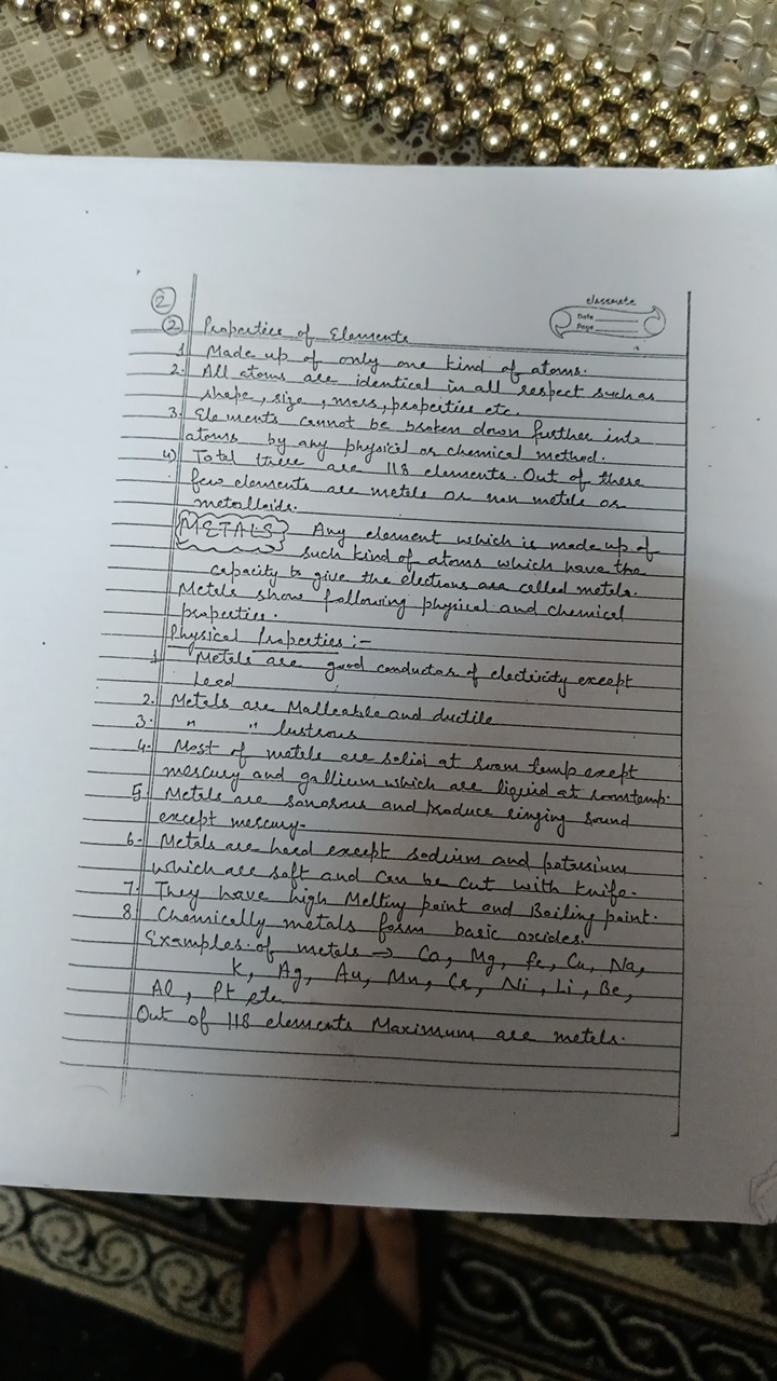 ②
classmate
Date
Page
② Properties of Elements
1. Made up of only one kind of atoms.
2. All atoms are identical in all respect such as
shape, size, mass, properties etc.
3. Elements cannot be broken down further into
atoms by any physical or chemical method.
4) Total there are 118 elements. Out of these
few elements are metals or non metals or
metalloids.
METALS Any element which is made up of
such kind of atoms which have the
capacity to give the electrons are called metals.
Metals show following physical and chemical
properties.
Physical Properties :-
1. Metals are good conductors of electricity except
Lead
2. Metals are Malleable and ductile
3. " " lustrous
4. Most of metals are solid at room temp exept
mercury and gallium which are liquid at roomtemp.
5. Metals are sonorous and produce ringing sound
except mercury.
6. Metals are hard except sodium and potassium
which are soft and can be cut with knife.
7. They have high Melting point and Boiling point.
8. Chemically metals form basic oxides.
Examples of metals → Ca, Mg, Fe, Cu, Na,
K, Ag, Au, Mn, Cr, Ni, Li, Be,
Al, Pt etc.
Out of 118 elements Maximum are metals.